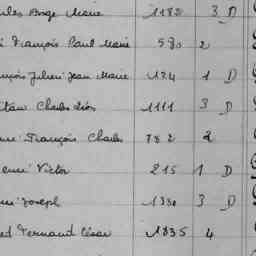 Ange Marie 1182 3 D
François Paul Marie 580 2
Julien Jean Marie 124 1 D
Charles Léon 1111 3 D
François Charles 782 2
Victor 215 1 D
Joseph 1380 3 D
Fernand César 1835 4